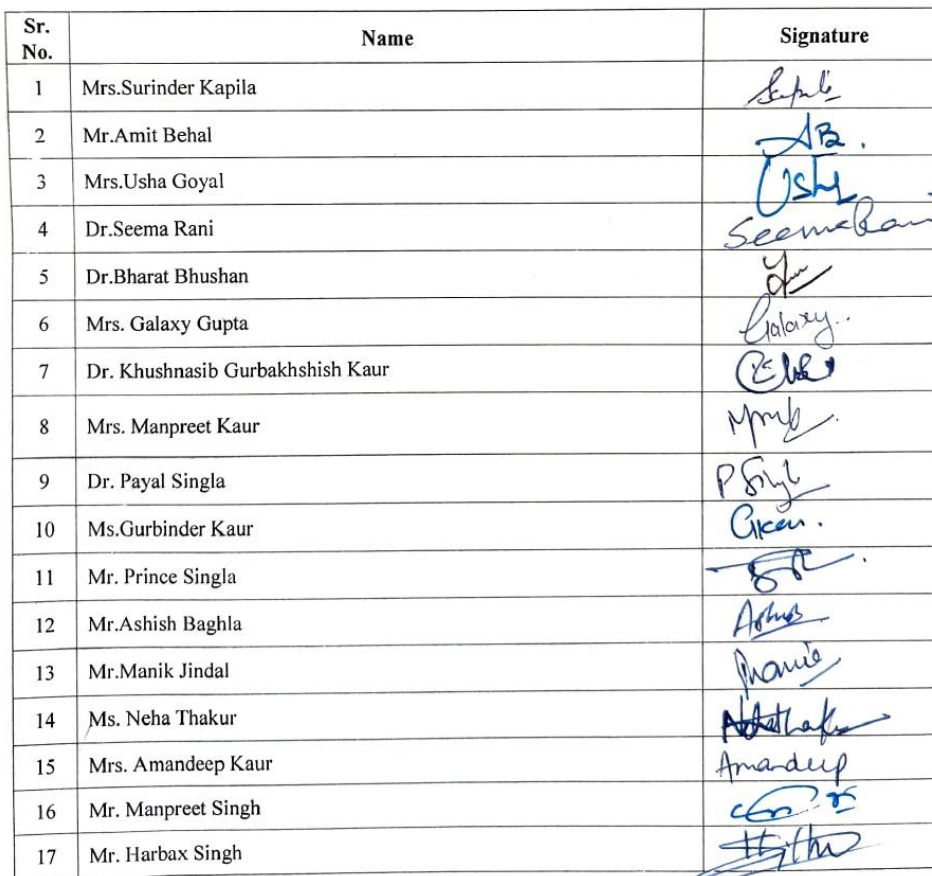 Sr. No. Name Signature
1 Mrs.Surinder Kapila
2 Mr.Amit Behal AB.
3 Mrs.Usha Goyal Usha
4 Dr.Seema Rani Seema Rani
5 Dr.Bharat Bhushan
6 Mrs. Galaxy Gupta Galaxy..
7 Dr. Khushnasib Gurbakhshish Kaur
8 Mrs. Manpreet Kaur
9 Dr. Payal Singla P Singla
10 Ms.Gurbinder Kaur
11 Mr. Prince Singla
12 Mr.Ashish Baghla
13 Mr.Manik Jindal
14 Ms. Neha Thakur
15 Mrs. Amandeep Kaur Amandeep
16 Mr. Manpreet Singh
17 Mr. Harbax Singh